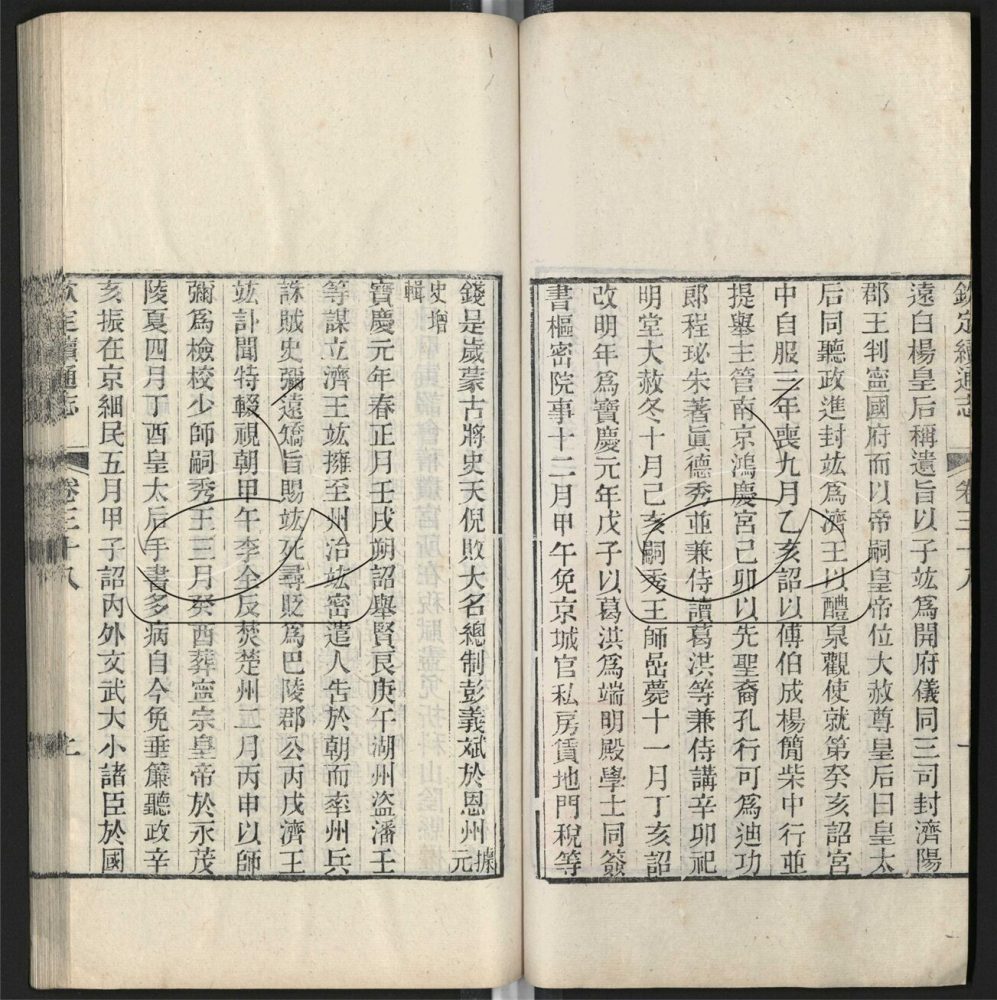 欽定續通志 卷三十八
遠白楊皇后稱遺旨以子竑爲開府儀同三司封濟陽
郡王判寧國府而以帝嗣皇帝位大赦尊皇后曰皇太
后同聽政進封竑爲濟王以醴泉觀使就第癸亥詔宮
中自服三年喪九月乙亥詔以傅伯成楊簡柴中行並
提舉主管南京鴻慶宮己卯以先聖裔孔行可爲迪功
郞程珌朱著眞德秀並兼侍讀葛洪等兼侍講辛卯祀
明堂大赦冬十月己亥嗣秀王師嵒薨十一月丁亥詔
改明年爲寶慶元年戊子以葛洪爲端明殿學士同簽
書樞密院事十二月甲午免京城官私房賃地門稅等
錢是歲蒙古將史天倪敗大名總制彭義斌於恩州據元
史增輯
寶慶元年春正月壬戌朔詔舉賢良庚午湖州盜潘壬
等謀立濟王竑擁至州治竑密遣人告於朝而率州兵
誅賊史彌遠矯旨賜竑死尋貶爲巴陵郡公丙戌濟王
竑訃聞特輟視朝甲午李全反焚楚州二月丙申以師
彌爲檢校少師嗣秀王三月癸酉葬寧宗皇帝於永茂
陵夏四月丁酉皇太后手書多病自今免垂簾聽政辛
亥振在京細民五月甲子詔內外文武大小諸臣於國
欽定續通志 卷三十八